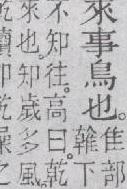 來事鳥也。
隹部
雗下
不知往。高曰。乾
來也。知歲多風